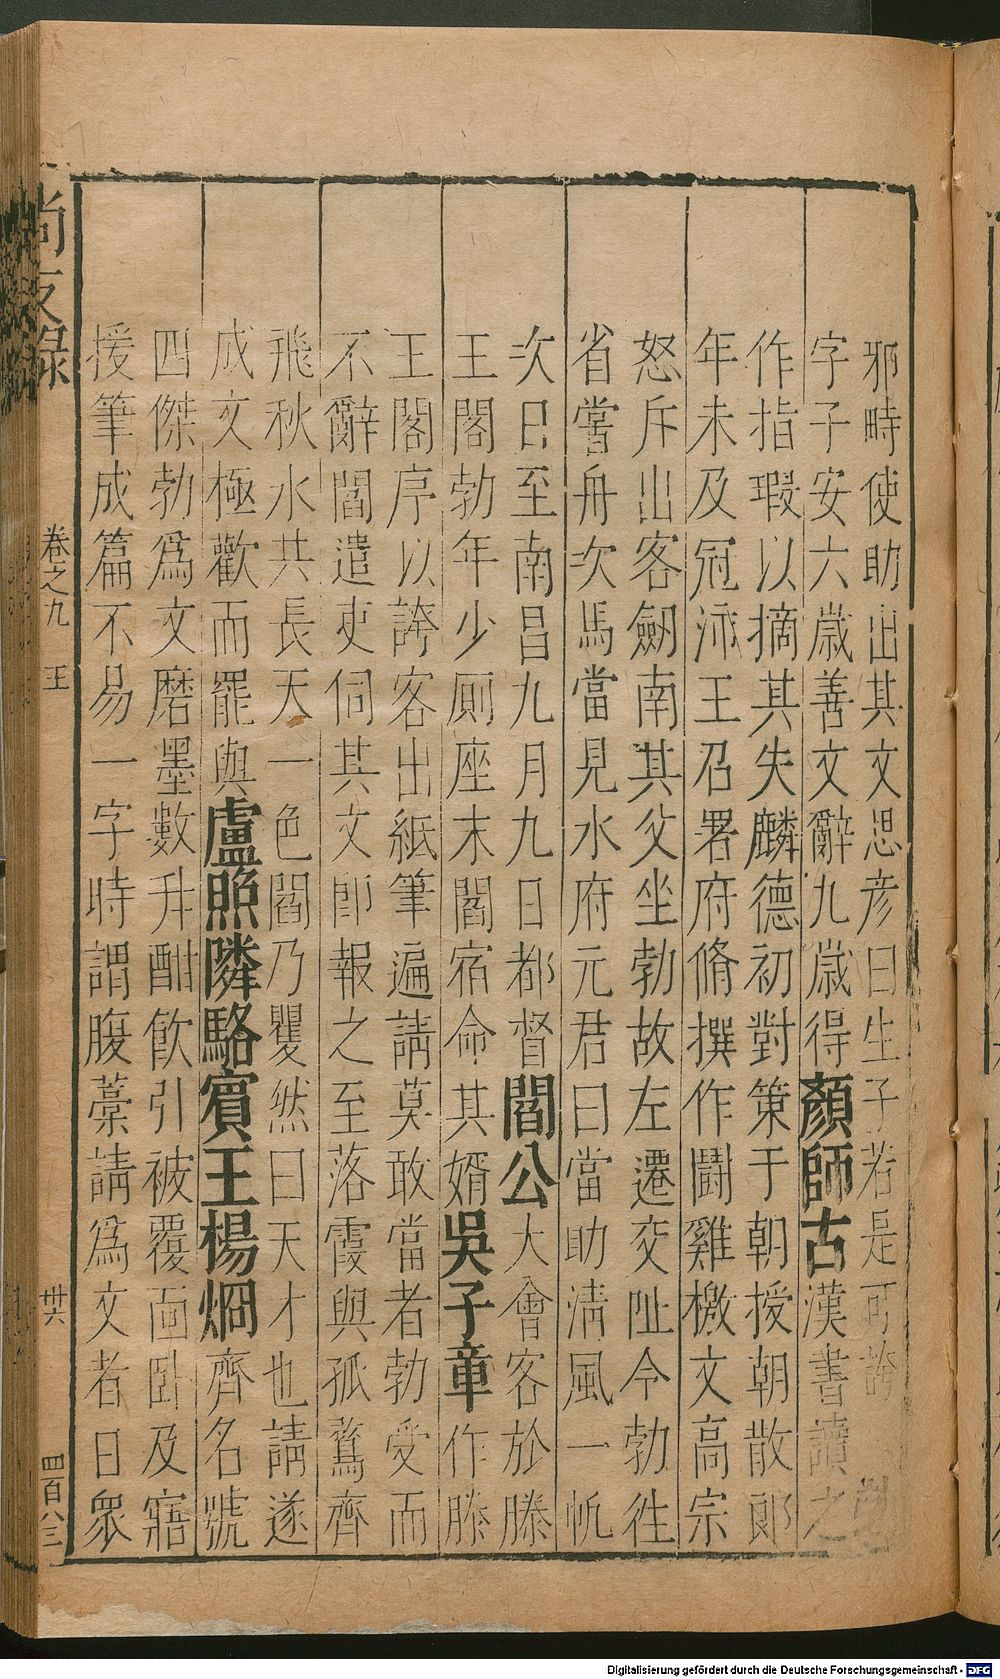 邪時使助出其文思彦曰生子若是可誇
字子安六歲善文辭九歲得顏師古漢書讀之
作指瑕以摘其失麟德初對策于朝授朝散郎
年未及冠沛王召署府脩撰作鬪雞檄文高宗
怒斥出客劒南其父坐勃故左遷交阯令勃徃
省嘗舟次馬當見水府元君曰當助清風一帆
次日至南昌九月九日都督閻公大會客於滕
王閣勃年少厠座末閻宿命其婿吳子章作滕
王閣序以誇客出紙筆遍請莫敢當者勃受而
不辭閻遣吏伺其文卽報之至落霞與孤鶩齊
飛秋水共長天一色閻乃矍然曰天才也請遂
成文極歡而罷與盧照隣駱賓王楊烱齊名號
四傑勃爲文磨墨數升酣飮引被覆面臥及寤
援筆成篇不易一字時謂腹藁請爲文者日眾
尚友錄 卷之九 王 卅六 四百八三
Digitalisierung gefördert durch die Deutsche Forschungsgemeinschaft - DFG